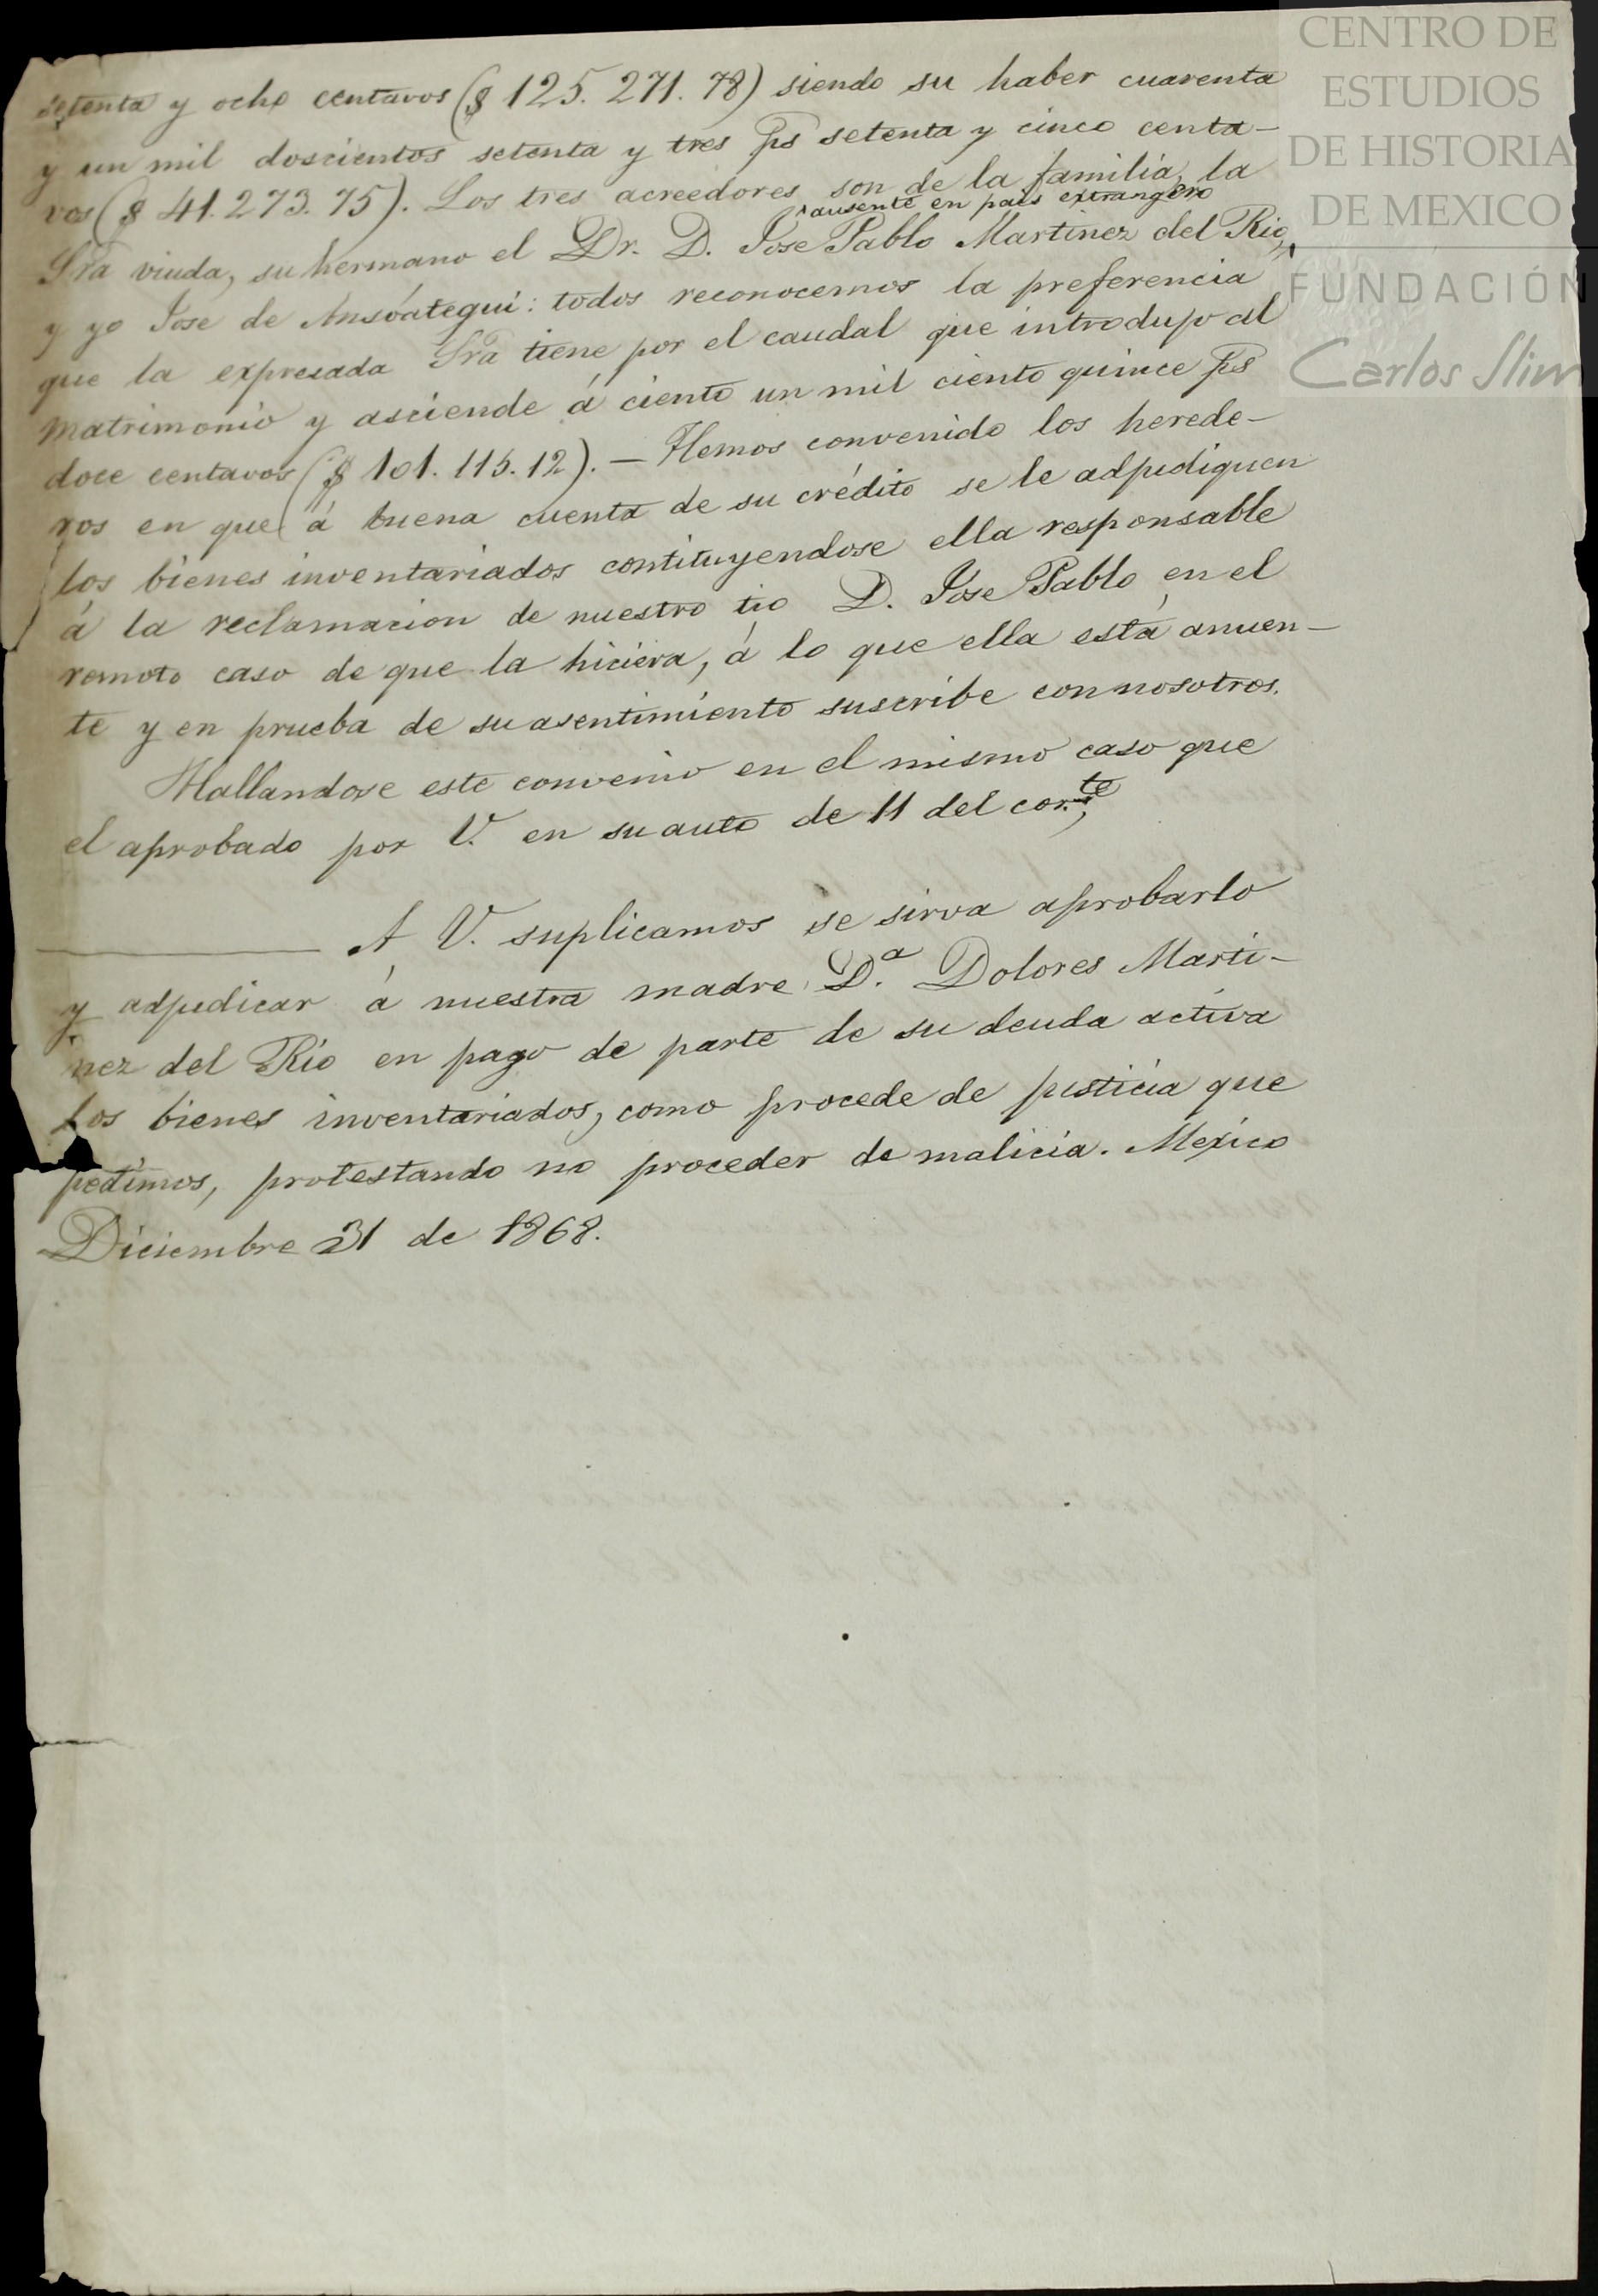 setenta y ocho centavos ($ 125.271.78) siendo su haber cuarenta
y un mil doscientos setenta y tres ps setenta y cinco centa-
vos ($ 41.273.75). Los tres acreedores son de la familia, la
ausente en pais extrangero
Sra viuda, su hermano el Dr. D. Jose Pablo Martinez del Rio,
y yo Jose de Ansoategui: todos reconocemos la preferencia
que la expresada Sra tiene por el caudal que introdujo al
matrimonio y asciende á ciento un mil ciento quince ps
doce centavos ($ 101.115.12). — Hemos convenido los herede-
ros en que á buena cuenta de su crédito se le adjudiquen
los bienes inventariados contituyendose ella responsable
á la reclamacion de nuestro tio D. Jose Pablo en el
remoto caso de que la hiciera, á lo que ella está anuen-
te y en prueba de su asentimiento suscribe con nosotros.
Hallandose este convenio en el mismo caso que
el aprobado por V. en su auto de 11 del corte,
A V. suplicamos se sirva aprobarlo
y adjudicar á nuestra madre D.a Dolores Marti-
nez del Rio en pago de parte de su deuda activa
los bienes inventariados, como procede de justicia que
pedimos, protestando no proceder de malicia. Mexico
Diciembre 31 de 1868.
CENTRO DE
ESTUDIOS
DE HISTORIA
DE MEXICO
FUNDACIÓN
Carlos Slim